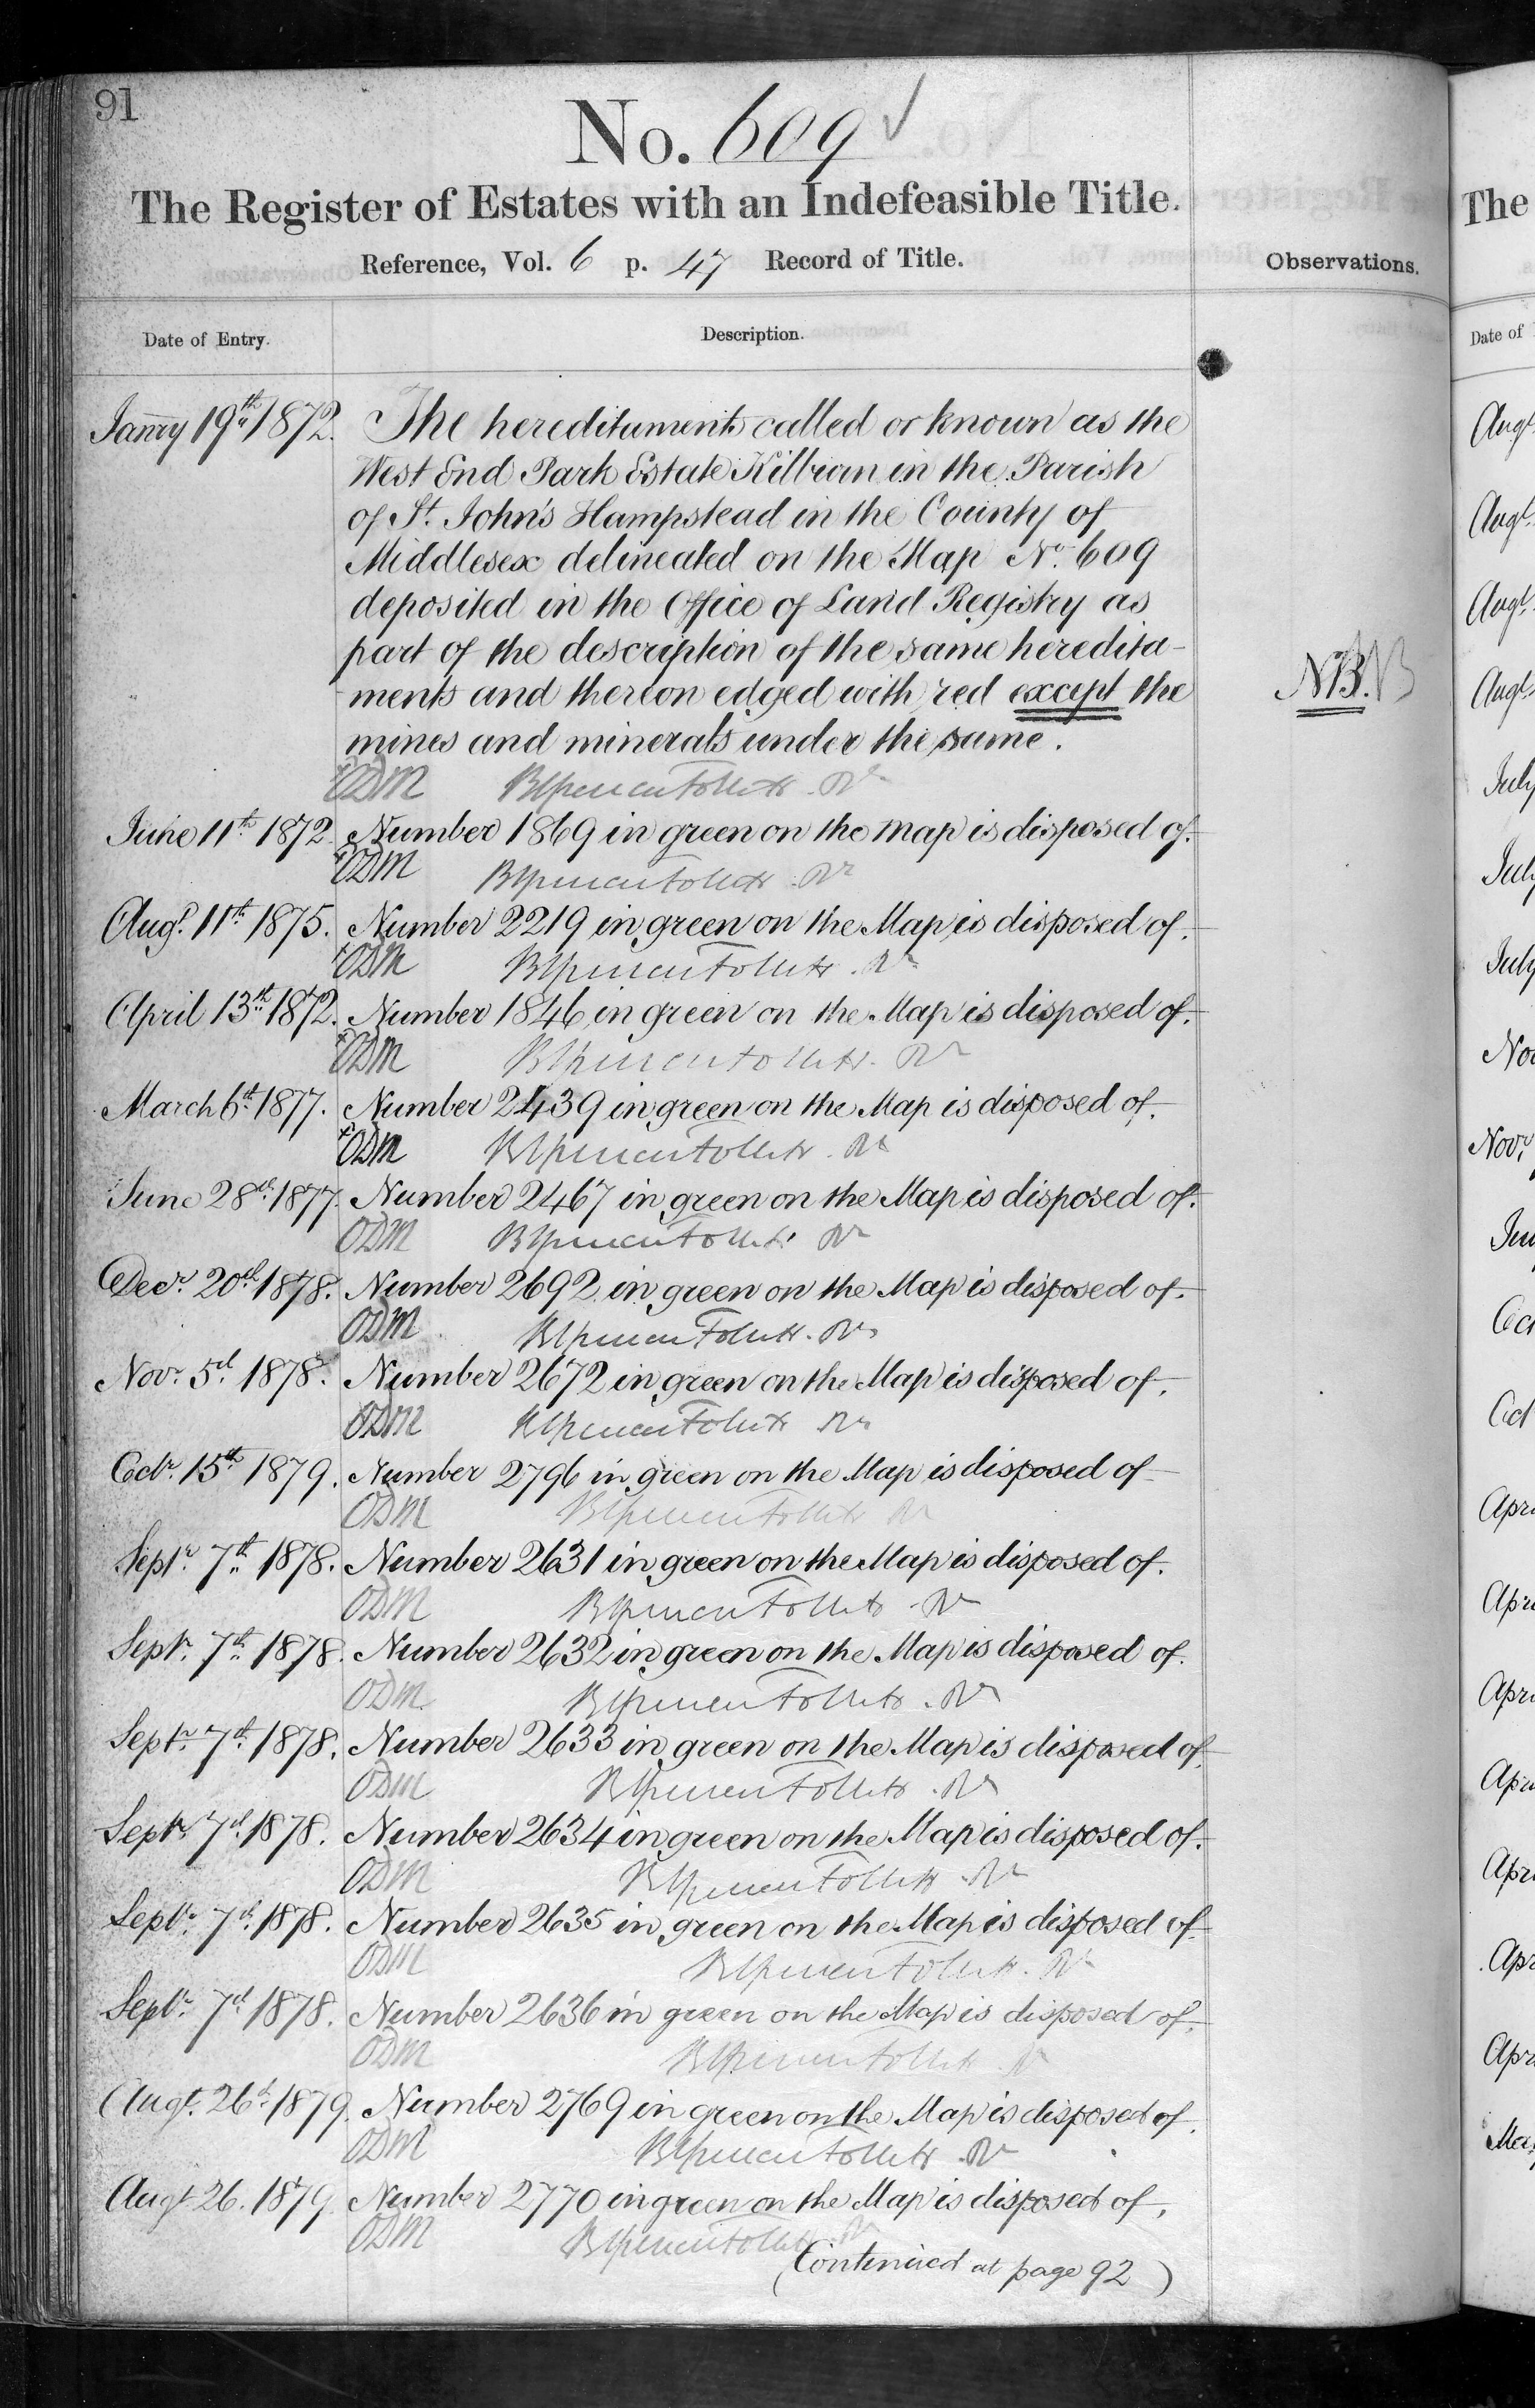 91
No. 609 ✓
The Register of Estates with an Indefeasible Title.
Reference, Vol. 6 p. 47 Record of Title.
Observations.
Date of Entry.
Description.
Janry 19th 1872. The hereditaments called or known as the
West End Park Estate Kilburn in the Parish
of St. John's Hampstead in the County of
Middlesex delineated on the Map No. 609
deposited in the Office of Land Registry as
part of the description of the same heredita-
ments and thereon edged with red except the
NB.
mines and minerals under the same.
ODM
June 11th 1872. Number 1869 in green on the map is disposed of.
ODM
Augt. 11th 1875. Number 2219 in green on the Map is disposed of.
ODM
April 13th 1872. Number 1846 in green on the Map is disposed of.
ODM
March 6th 1877. Number 2439 in green on the Map is disposed of.
ODM
June 28th 1877. Number 2467 in green on the Map is disposed of.
ODM
Decr. 20th 1878. Number 2692 in green on the Map is disposed of.
ODM
Novr. 5th 1878. Number 2672 in green on the Map is disposed of.
ODM
Octr. 15th 1879. Number 2796 in green on the Map is disposed of
ODM
Septr. 7th 1878. Number 2631 in green on the Map is disposed of.
ODM
Septr. 7th 1878. Number 2632 in green on the Map is disposed of.
ODM
Septr. 7th 1878. Number 2633 in green on the Map is disposed of.
ODM
Septr. 7th 1878. Number 2634 in green on the Map is disposed of.
ODM
Septr. 7th 1878. Number 2635 in green on the Map is disposed of
ODM
Septr. 7th 1878. Number 2636 in green on the Map is disposed of.
ODM
Augt. 26th 1879. Number 2769 in green on the Map is disposed of.
ODM
Augt 26. 1879. Number 2770 in green on the Map is disposed of.
ODM
(Continued at page 92)
The
Date of
Augt.
Augt.
Augt.
Augt.
July
July
July
Nov
Novr.
Jun
Oct
Oct
Apri
Apri
Apri
Apri
Apri
Apri
Apri